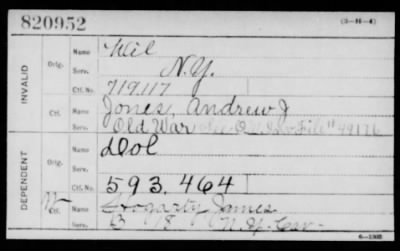 820952 (3-H-4)
INVALID
Orig. Name Wil
Serv. N.Y.
Ctf. No. 719117
Ctf. Name Jones, Andrew J
Serv. Old War File #49176
DEPENDENT
Orig. Name dol
Serv.
Ctf. No. 593.464
Ctf. Name Hogarty James
Serv. B 8 N.Y. Cav.
6-1903